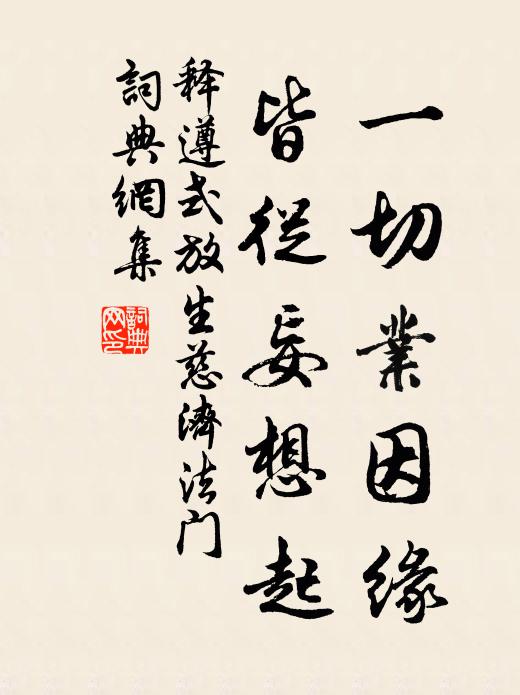 一切業因緣
皆從妄想起
释遵式放生慈濟法门
詞典網集
詞典网印